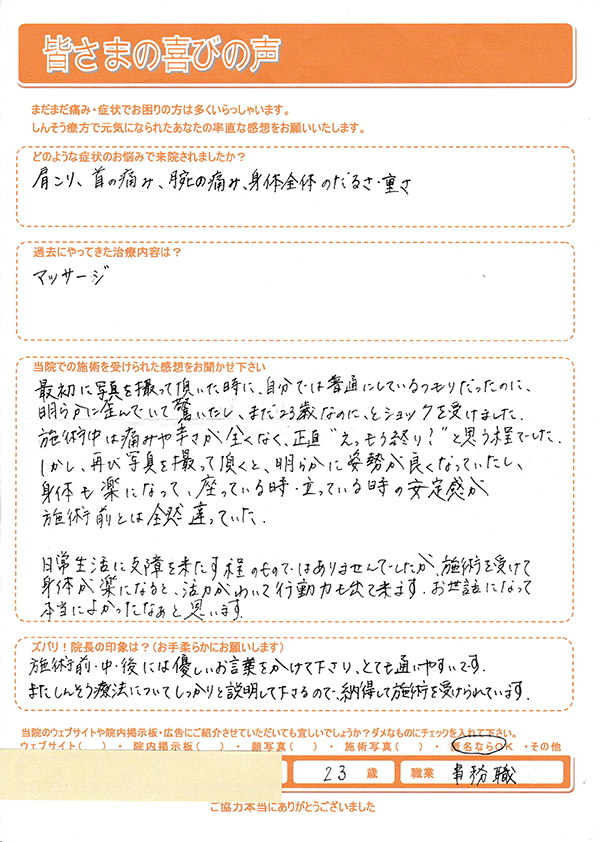 皆さまの喜びの声
まだまだ痛み・症状でお困りの方は多くいらっしゃいます。
しんそう療方で元気になられたあなたの率直な感想をお願いいたします。
どのような症状のお悩みで来院されましたか？
肩こり、首の痛み、腕の痛み、身体全体のだるさ・重さ
過去にやってきた治療内容は？
マッサージ
当院での施術を受けられた感想をお聞かせ下さい
最初に写真を撮って頂いた時に、自分では普通にしているつもりだったのに、
明らかに歪んでいて驚いたし、まだ23歳なのに、とショックを受けました。
施術中は痛みや辛さが全くなく、正直"えっもう終り？"と思う程でした。
しかし、再び写真を撮って頂くと、明らかに姿勢が良くなっていたし、
身体も楽になって、座っている時・立っている時の安定感が
施術前とは全然違っていた。
日常生活に支障を来たす程のものではありませんでしたが、施術を受けて
身体が楽になると、活力がわいて行動力も出て来ます。お世話になって
本当によかったなぁと思います。
ズバリ！院長の印象は？（お手柔らかにお願いします）
施術前・中・後には優しいお言葉をかけて下さり、とても通いやすいです。
またしんそう療法についてしっかりと説明して下さるので、納得して施術を受けられています。
当院のウェブサイトや院内掲示板・広告にご紹介させていただいても宜しいでしょうか？ダメなものにチェックを入れて下さい。
ウェブサイト（　）・ 院内掲示板（　）・ 顔写真（　）・ 施術写真（　）・ 匿名ならOK ・その他
23 歳 職業 事務職
ご協力本当にありがとうございました